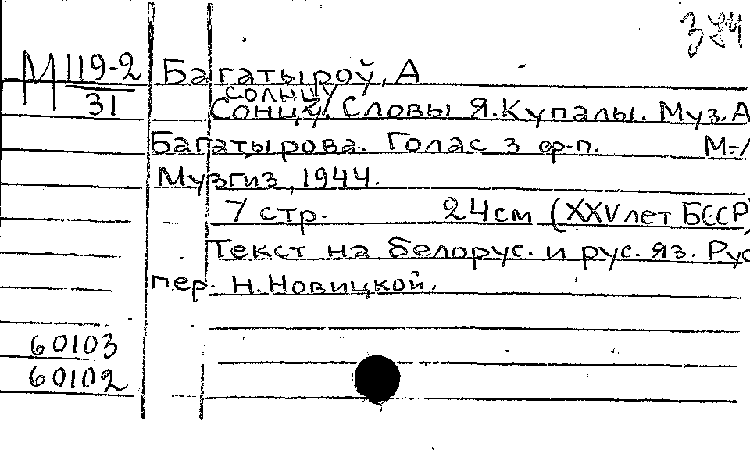 324
М 119-2 Багатыроў, А
31 солнцу
Сонцу. Словы Я.Купалы. Муз.А
Багатырова. Голас з ф-п. М.-
Музгиз, 1944.
7 стр. 24см (XXV лет БССР)
Текст на белорус. и рус. яз. Рус
пер. Н.Новицкой.
60103
60102